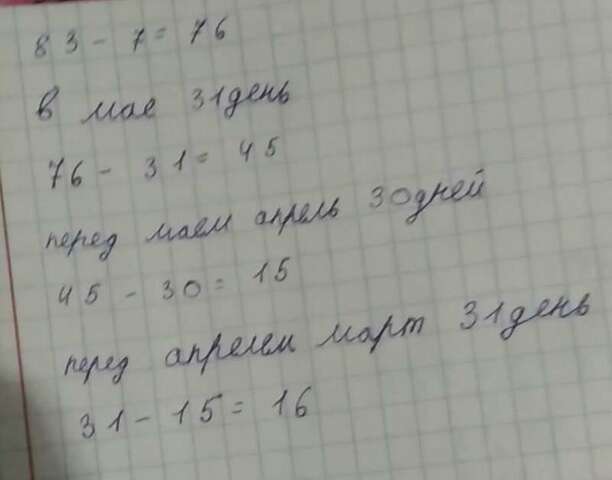 83 - 7 = 76
в мае 31 день
76 - 31 = 45
перед маем апрель 30 дней
45 - 30 = 15
перед апрелем март 31 день
31 - 15 = 16